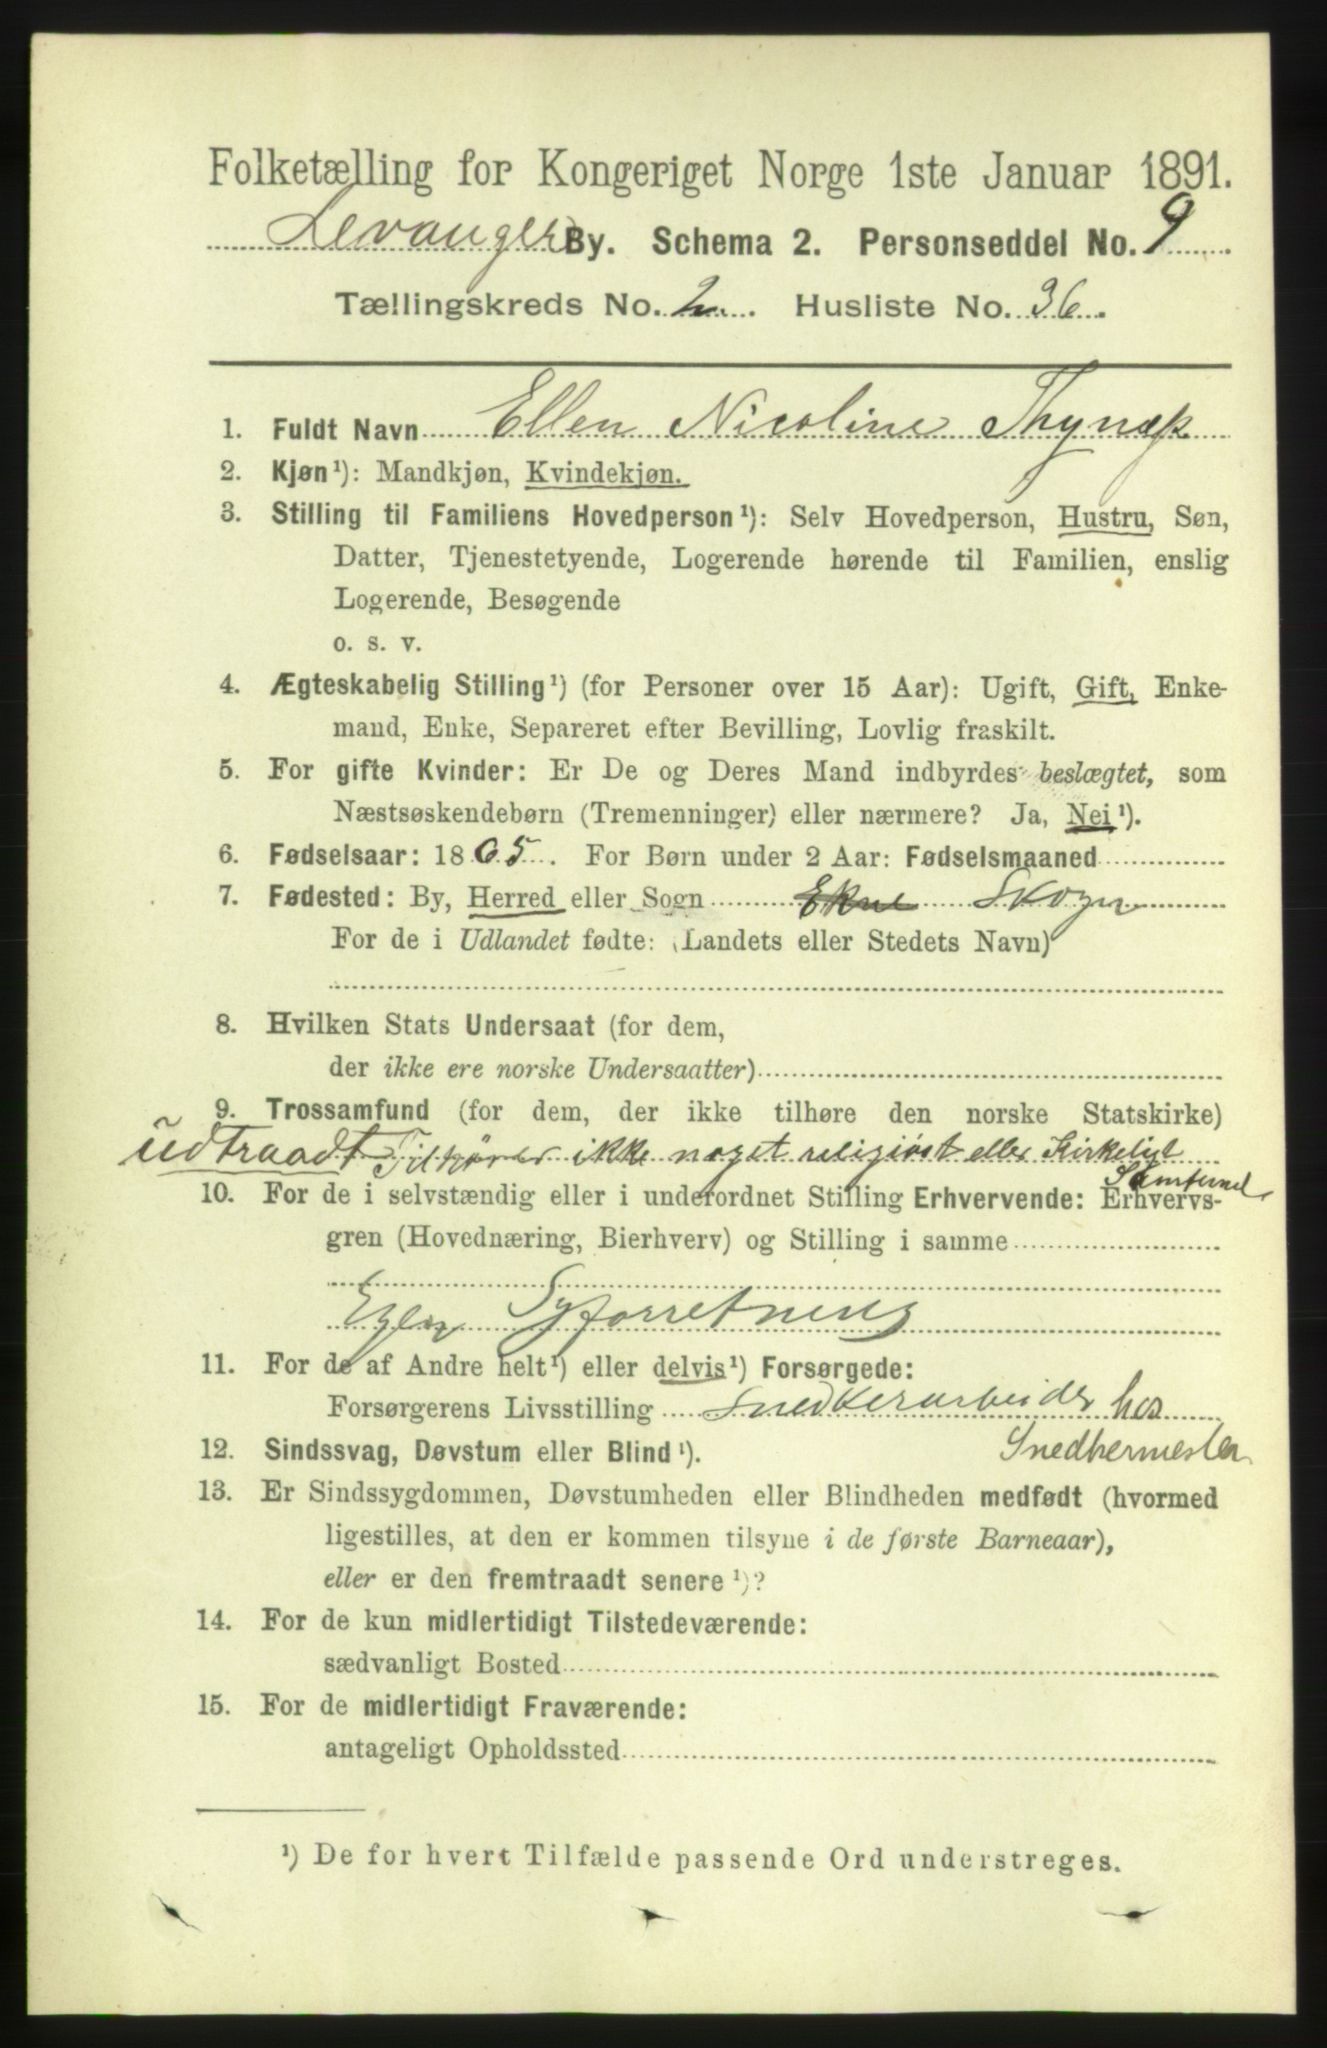 Folketælling for Kongeriget Norge 1ste Januar 1891.
Levanger By. Schema 2. Personseddel No. 9
Tællingskreds No. 2. Husliste No. 36.
1. Fuldt Navn Ellen Nicoline
2. Kjøn¹): Mandkjøn, Kvindekjøn.
3. Stilling til Familiens Hovedperson¹): Selv Hovedperson, Hustru, Søn,
Datter, Tjenestetyende, Logerende hørende til Familien, enslig
Logerende, Besøgende
o. s. v.
4. Ægteskabelig Stilling¹) (for Personer over 15 Aar): Ugift, Gift, Enke-
mand, Enke, Separeret efter Bevilling, Lovlig fraskilt.
5. For gifte Kvinder: Er De og Deres Mand indbyrdes beslægtet, som
Næstsøskendebørn (Tremenninger) eller nærmere? Ja, Nei¹).
6. Fødselsaar: 1865. For Børn under 2 Aar: Fødselsmaaned
7. Fødested: By, Herred eller Sogn Ekne Skogn
For de i Udlandet fødte: (Landets eller Stedets Navn)
8. Hvilken Stats Undersaat (for dem,
der ikke ere norske Undersaatter)
9. Trossamfund (for dem, der ikke tilhøre den norske Statskirke)
udtraadt Tilhører ikke noget religiøst eller Kirkeligt
Samfund
10. For de i selvstændig eller i underordnet Stilling Erhvervende: Erhvervs-
gren (Hovednæring, Bierhverv) og Stilling i samme
Egen Syforretning
11. For de af Andre helt¹) eller delvis¹) Forsørgede:
Forsørgerens Livsstilling Snedkerarbeider hos
Snedkermester
12. Sindssvag, Døvstum eller Blind¹).
13. Er Sindssygdommen, Døvstumheden eller Blindheden medfødt (hvormed
ligestilles, at den er kommen tilsyne i de første Barneaar),
eller er den fremtraadt senere¹)?
14. For de kun midlertidigt Tilstedeværende:
sædvanligt Bosted
15. For de midlertidigt Fraværende:
antageligt Opholdssted
¹) De for hvert Tilfælde passende Ord understreges.